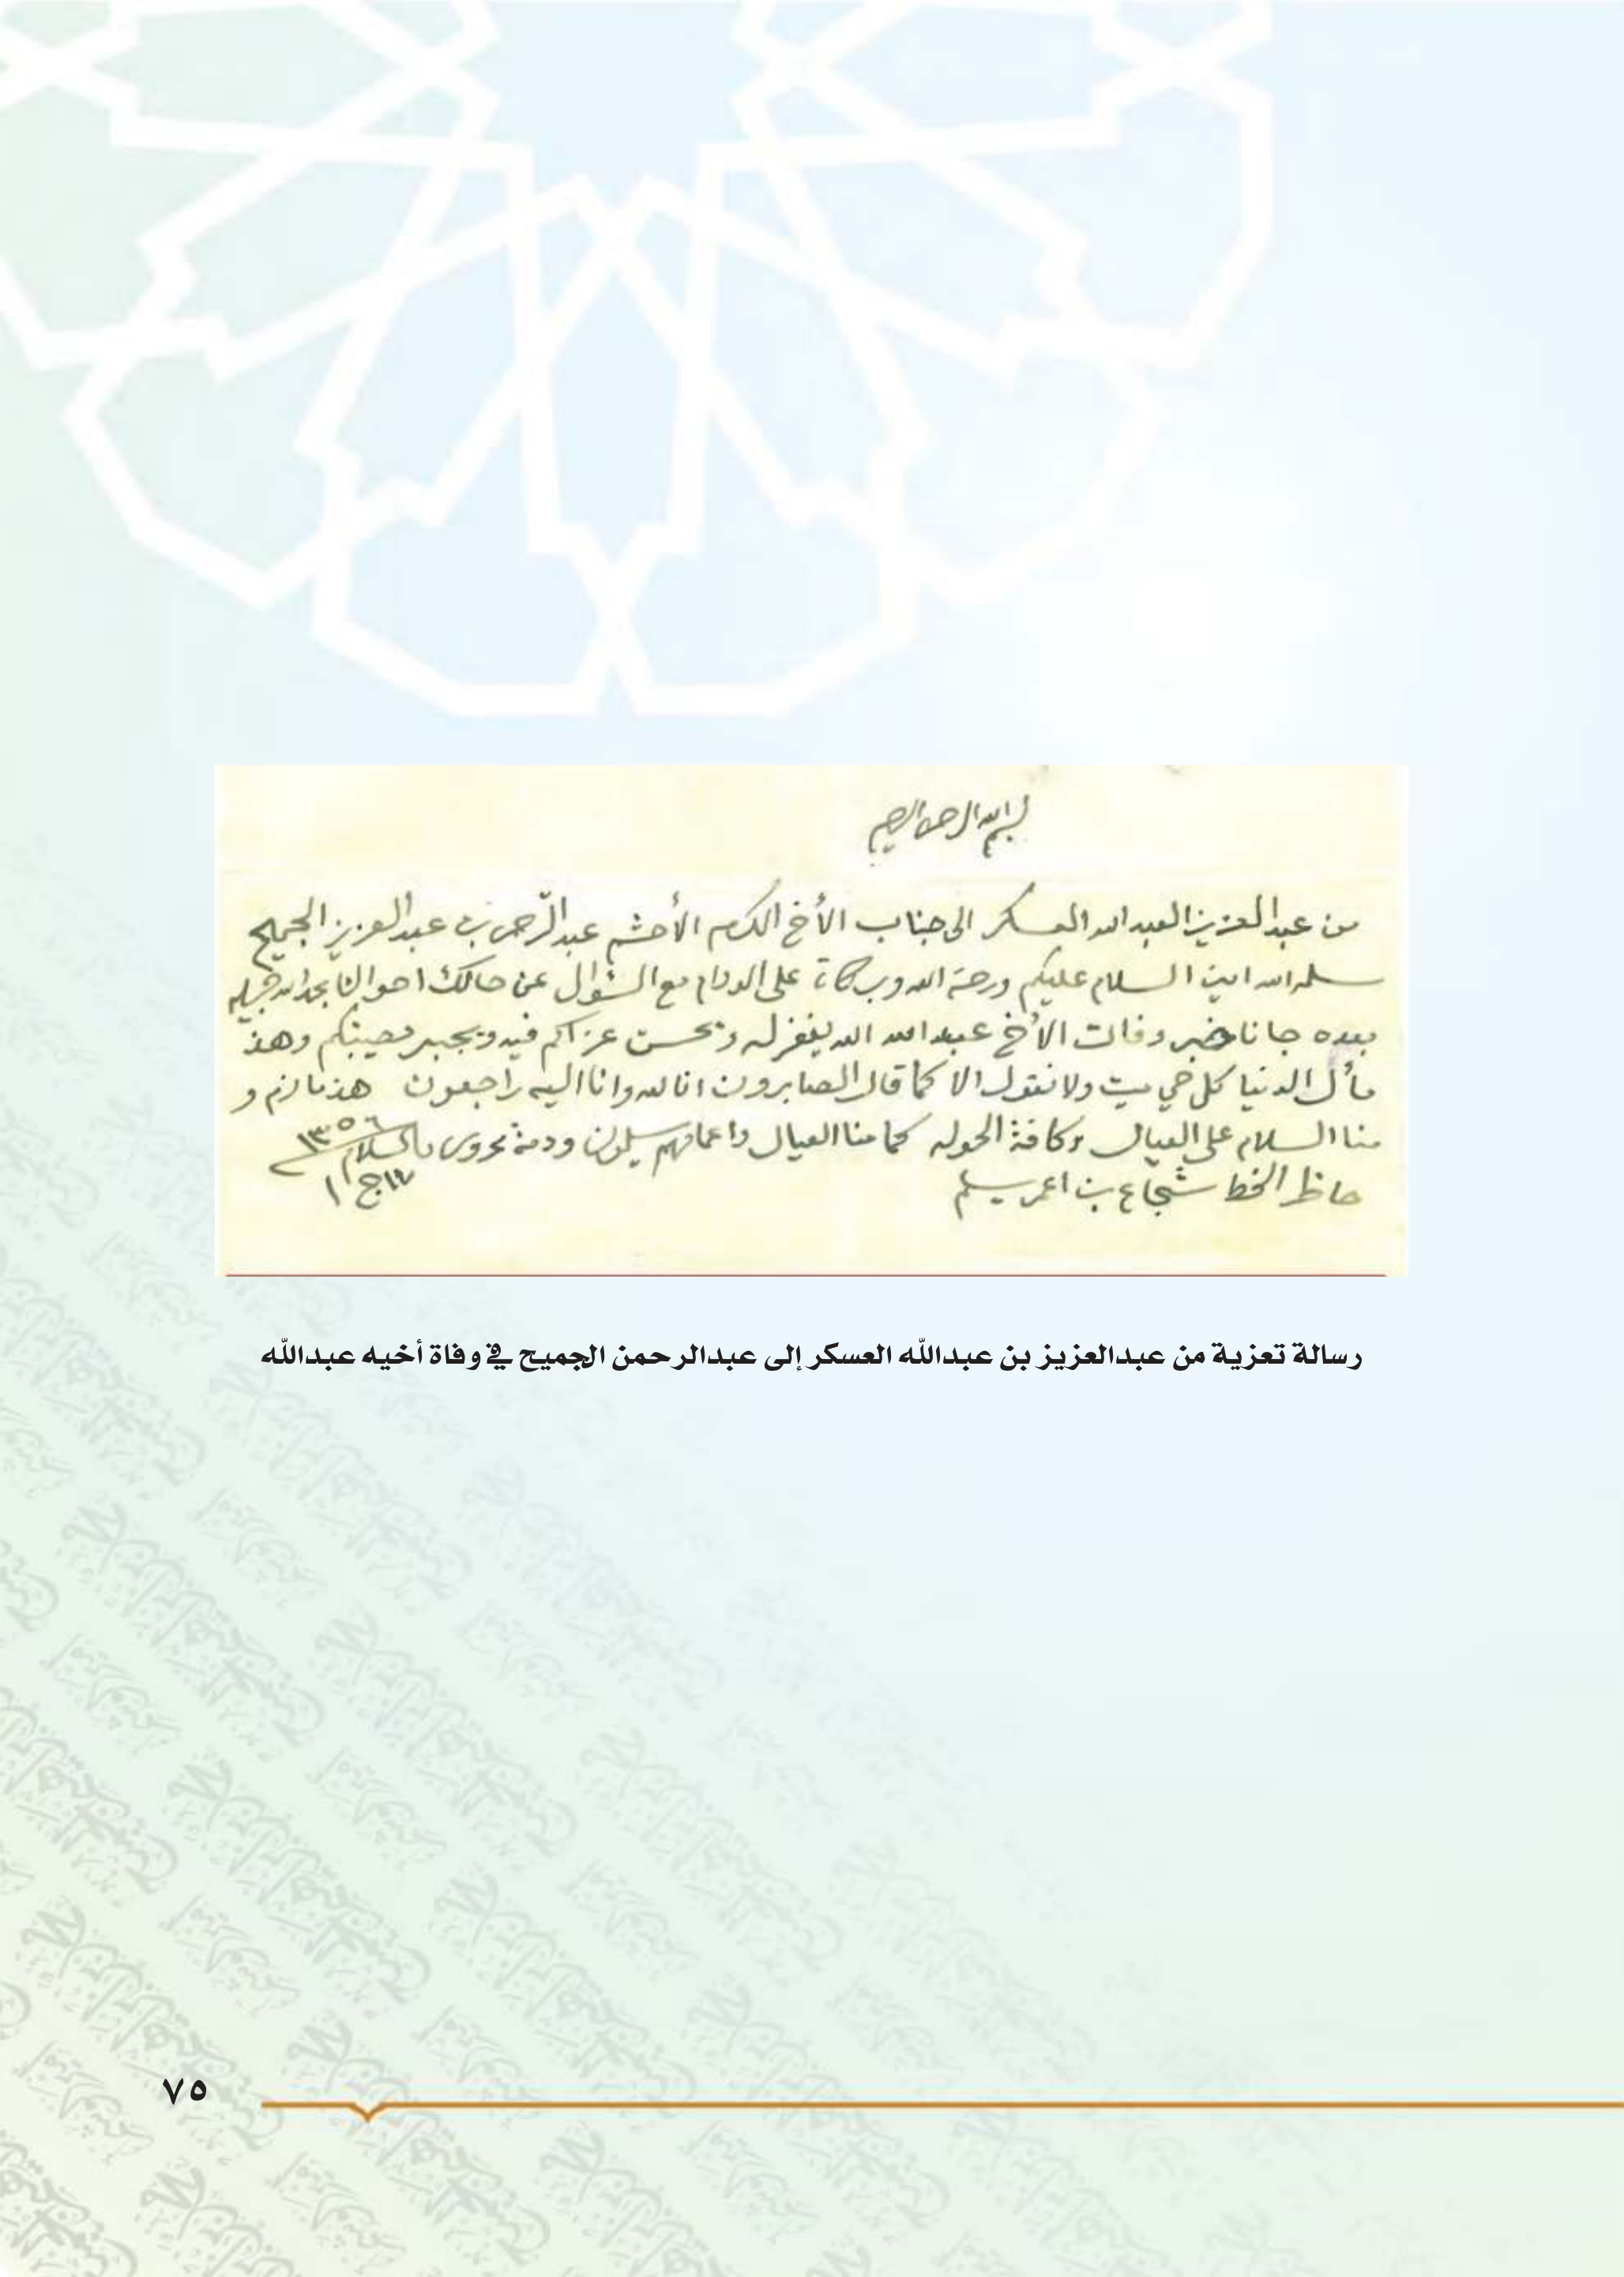 بسم الله الرحمن الرحيم
من عبدالعزيز العبدالله العسكر الى جناب الأخ المكرم الأحشم عبدالرحمن بن عبدالعزيز الجميح
سلمه الله امين السلام عليكم ورحمة الله وبركاته على الدوام مع السؤال عن حالك احوالنا بحمد الله جميله
بعده جانا خبر وفات الأخ عبدالله الله يغفرله ويحسن عزاكم فيه ويجبر مصيبتكم وهذ
مأل الدنيا كل حي ميت ولا نقول الا كما قال الصابرون انا لله وانا اليه راجعون هذ مالزم و
منا السلام على العيال وكافة الحموله كما منا العيال واعمامهم يسلمون ودمتم محروسين والسلام ١٣٥٦
حافظ الخط شجاع بن اعمر يسلم
١٧ ج ١
رسالة تعزية من عبدالعزيز بن عبدالله العسكر إلى عبدالرحمن الجميح في وفاة أخيه عبدالله
٧٥